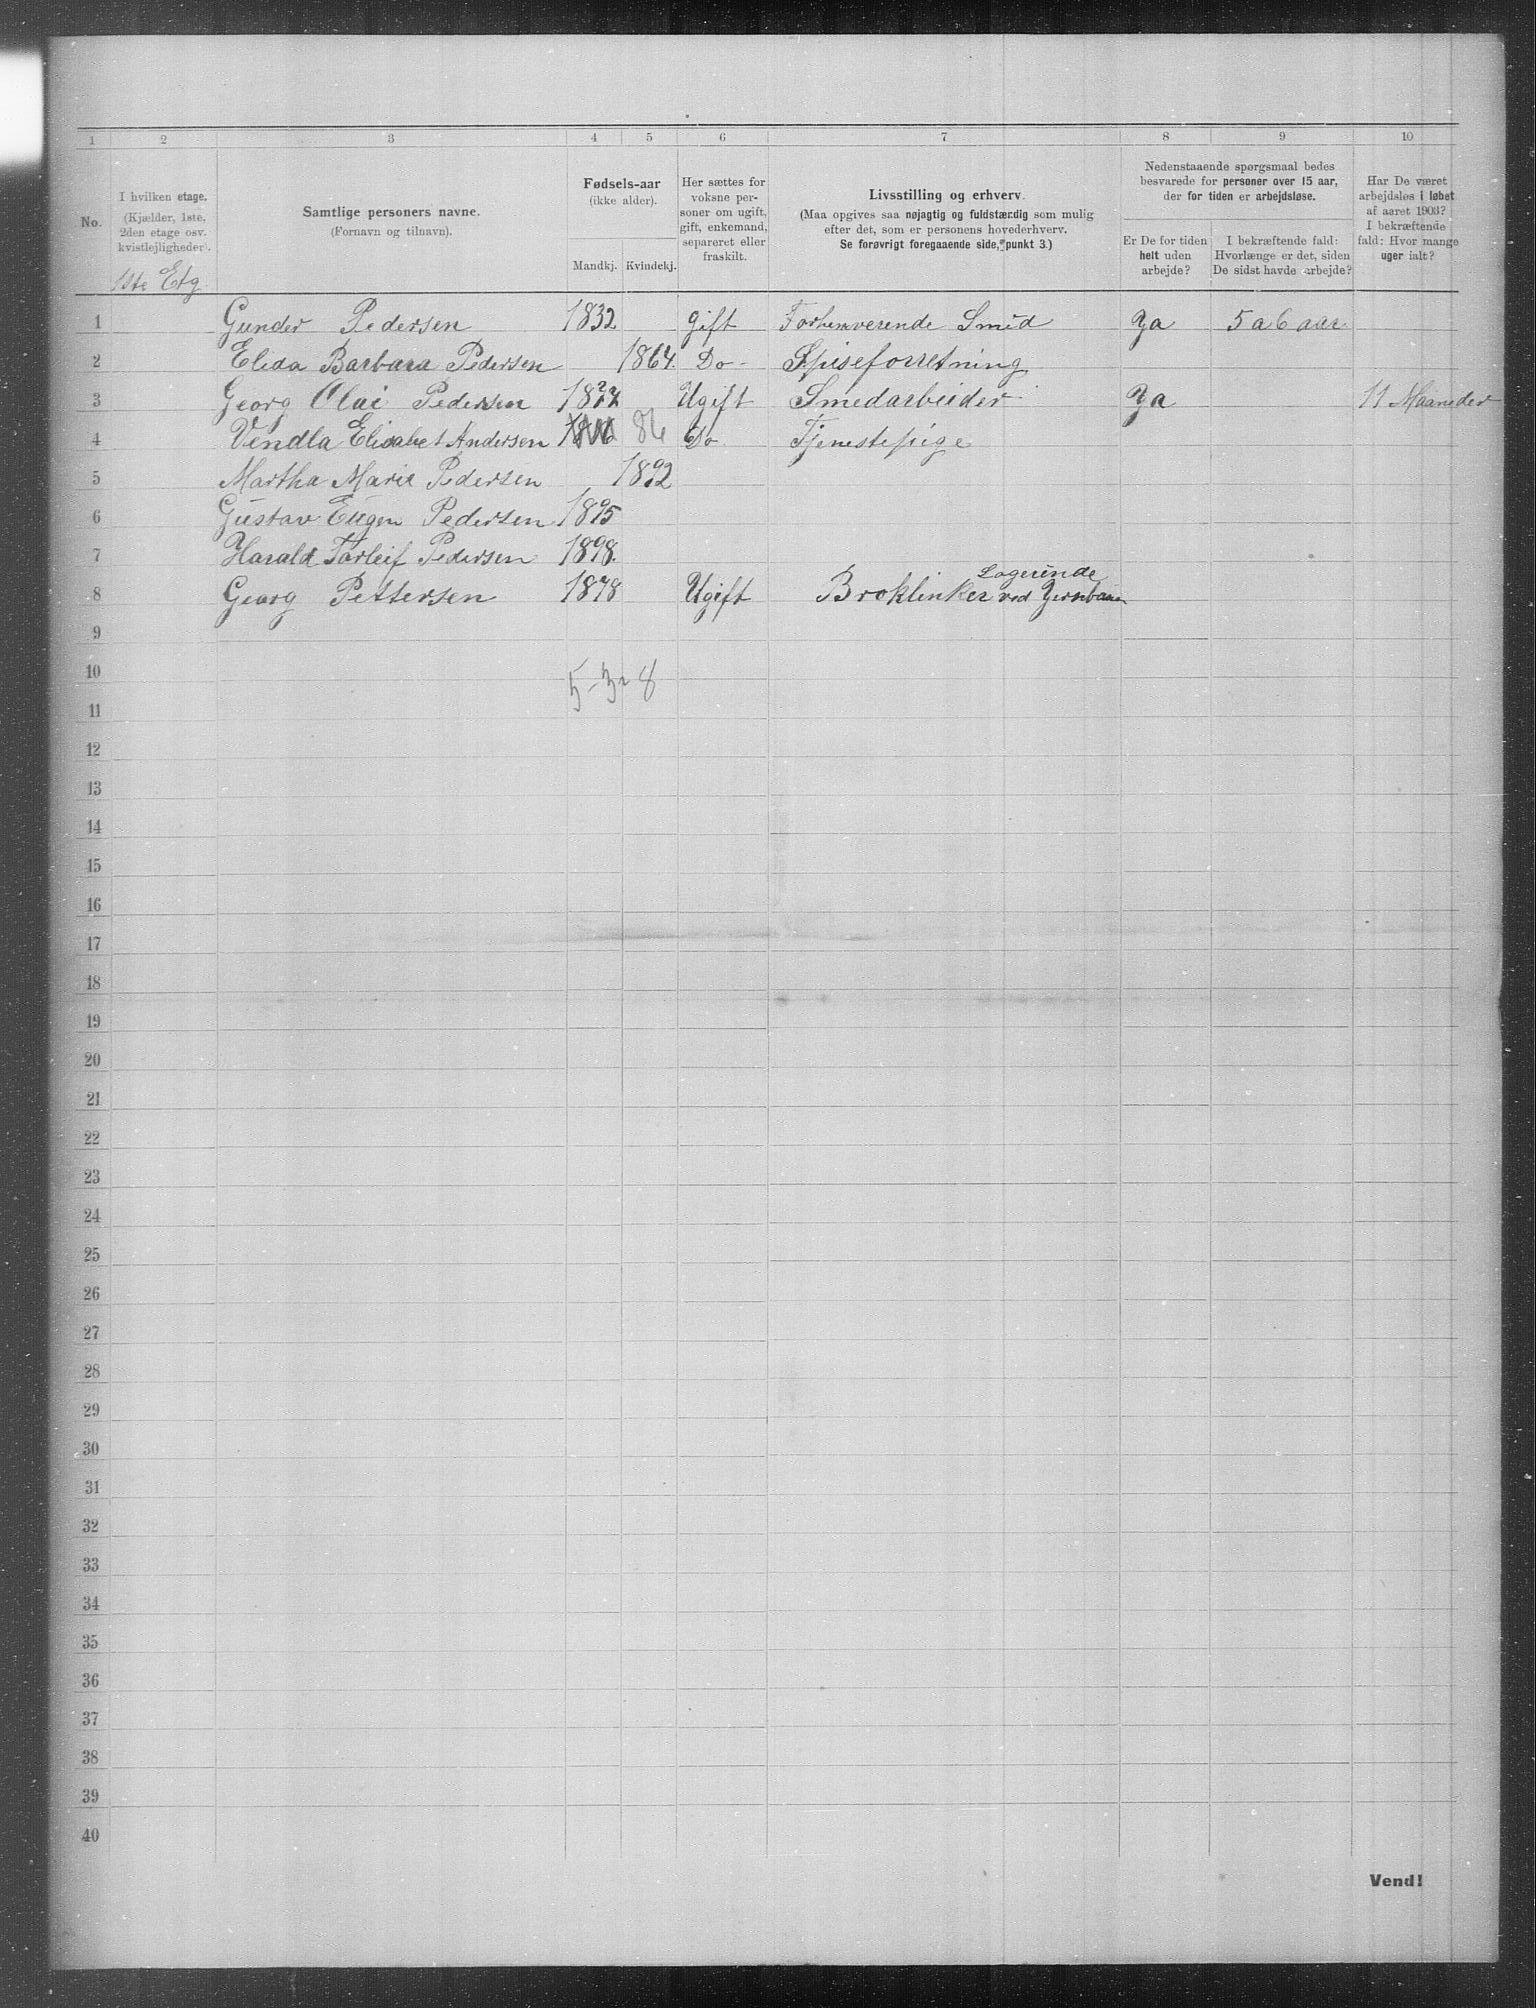 1 2 3 4 5 6 7 8 9 10
No.
I hvilken etage.
(Kjælder, 1ste,
2den etage osv.
kvistlejligheder).
1ste Etg
Samtlige personers navne.
(Fornavn og tilnavn).
Fødsels-aar
(ikke alder).
Mandkj. Kvindekj.
Her sættes for
voksne per-
soner om ugift,
gift, enkemand,
separeret eller
fraskilt.
Livsstilling og erhverv.
(Maa opgives saa nøjagtig og fuldstændig som mulig
efter det, som er personens hovederhverv.
Se forøvrigt foregaaende side, punkt 3.)
Nedenstaaende spørgsmaal bedes
besvarede for personer over 15 aar,
der for tiden er arbejdsløse.
Er De for tiden
helt uden
arbejde?
I bekræftende fald:
Hvorlænge er det, siden
De sidst havde arbejde?
Har De været
arbejdsløs i løbet
af aaret 1903?
I bekræftende
fald: Hvor mange
uger ialt?
1 Gunder Pedersen 1832 gift Forhenverende Smid Ja 5 a 6 aar
2 Elida Barbara Pedersen 1864. Do - Spiseforretning
3 Georg Olai Pedersen Ugift Smedarbeider Ja 11 Maaneder
4 Vendla Elisabet Andersen 86 Do Tjenestepige
5 Martha Marie Pedersen 1892
6 Gustav Eugen Pedersen 1895
7 Harald Torleif Pedersen 1898.
Logerende
8 Georg Pettersen 1878 Ugift Broklinker ved Jernbanen
9
10 5-3-8
11
12
13
14
15
16
17
18
19
20
21
22
23
24
25
26
27
28
29
30
31
32
33
34
35
36
37
38
39
40
Vend!